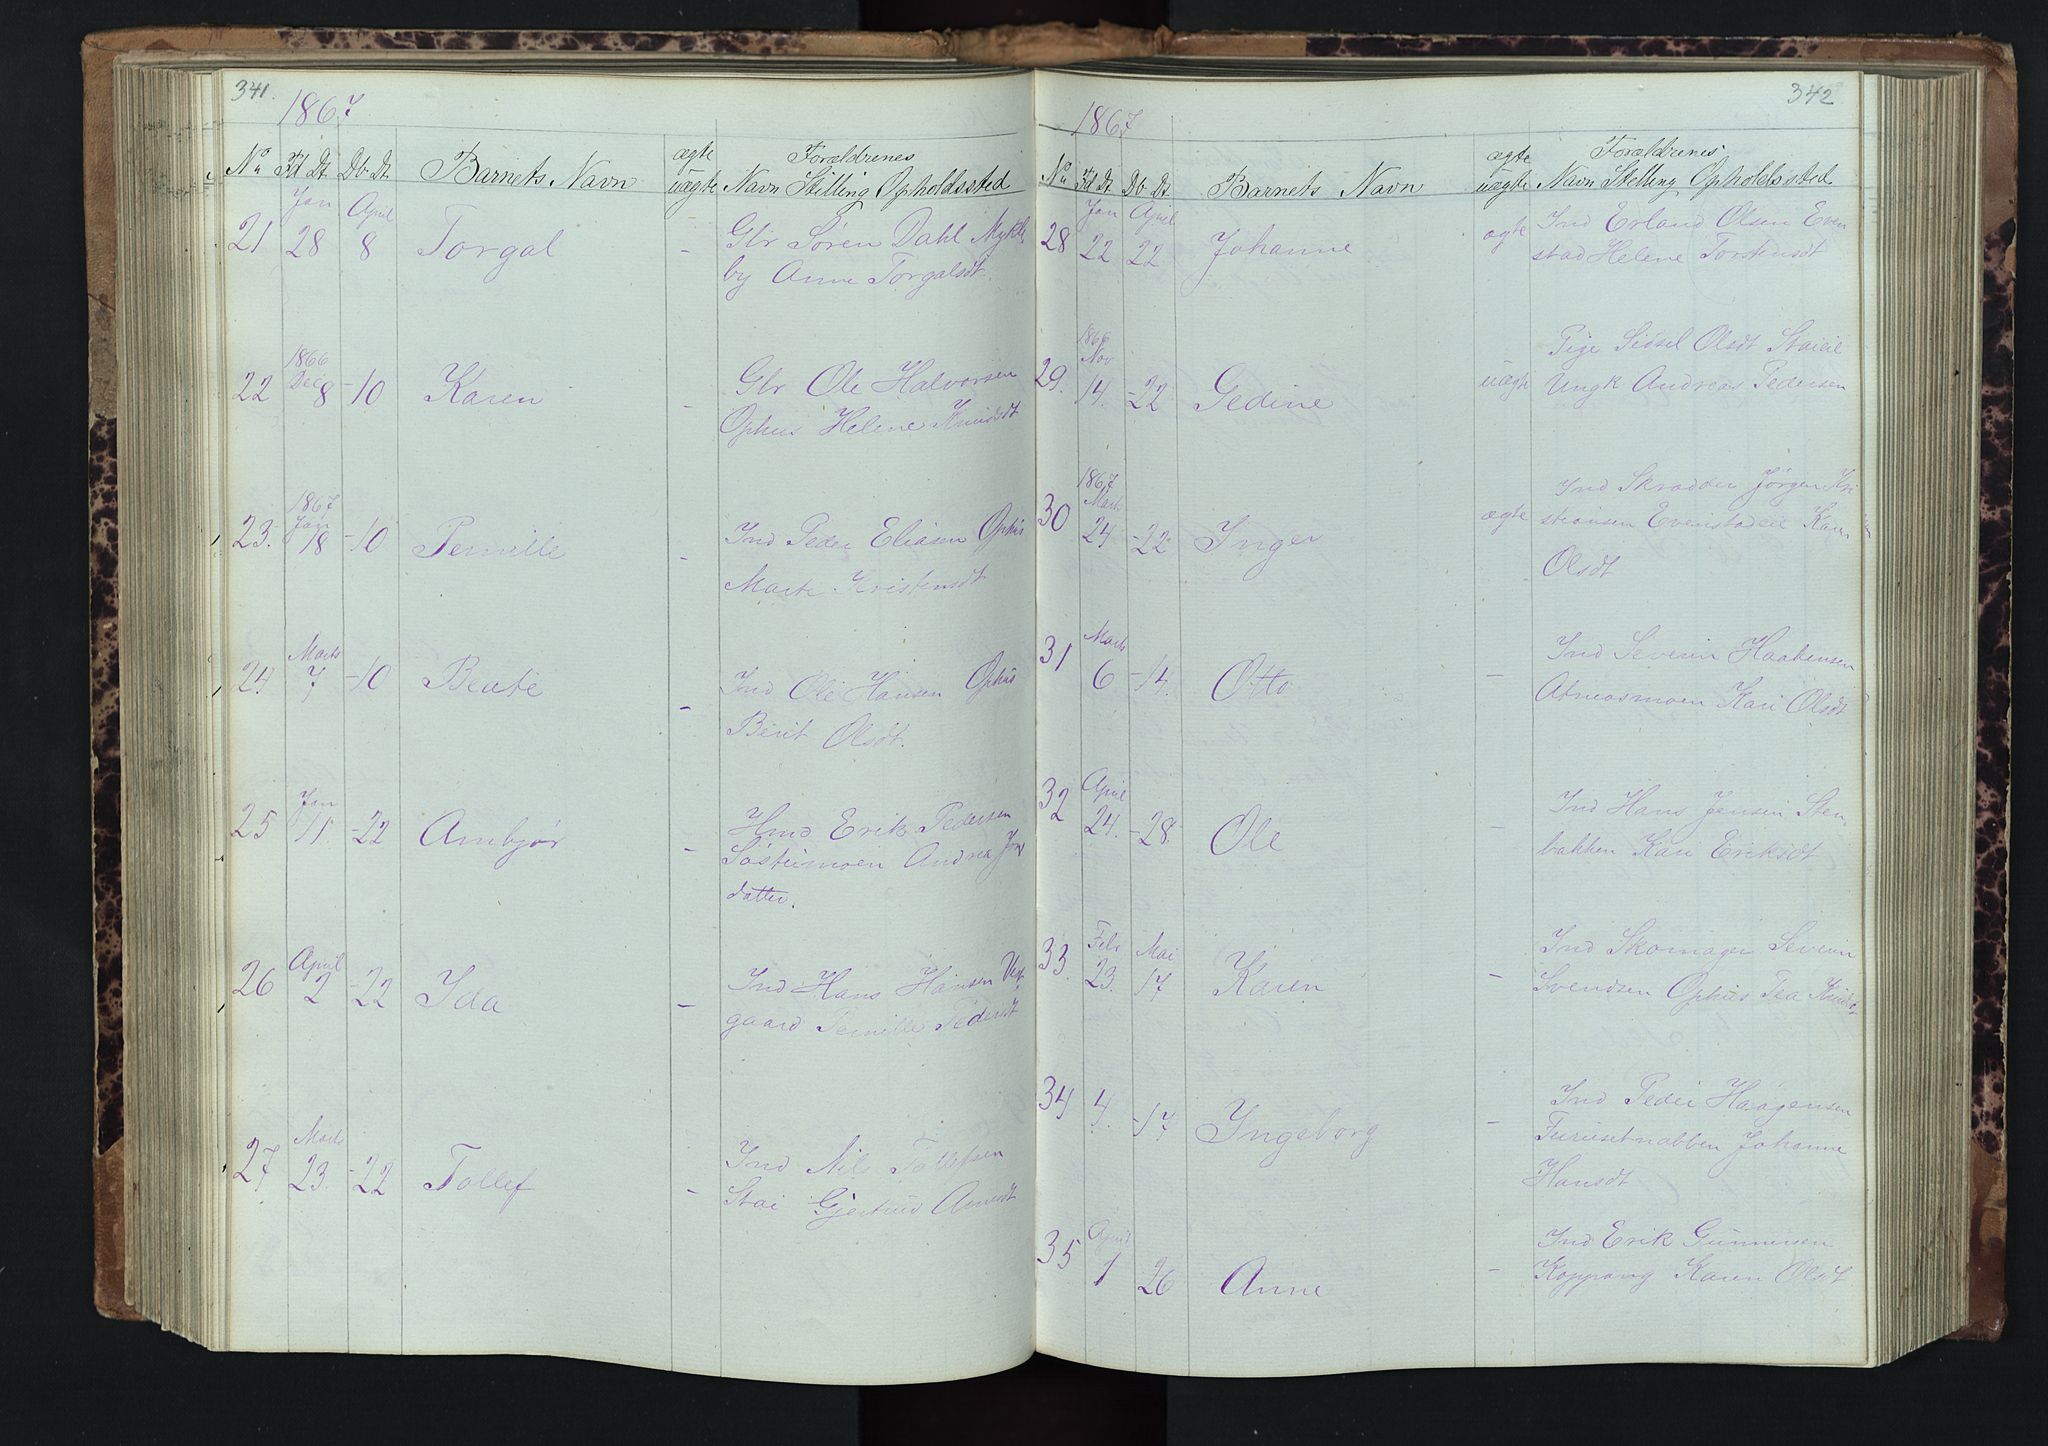 341.
1867
No Fd Dt. Db Dt. Barnets Navn ægte uægte Forældrenes Navn Stilling Opholdssted
Jan April
21 28 8 Torgal - Gbr Søren Dahl Mykle
by Anne Torgalsdt.
1866
Dec
22 8 -10 Karen - Gbr Ole Halvorsen
Ophus Helene Knudsdt
1867
Jan
23. 18 -10 Pernille - Ind Peder Eliasen Ophus
Marte Kristensdt
Marts
24 7 -10 Beate - Ind Ole Hansen Ophus
Berit Olsdt.
Jan
25 11. -22 Ambjør - Hmd Erik Pedersen
Andrea Jons
datter.
April
26 2 -22 Ida - Ind Hans Hansen Vest
gaard Pernille Pedersdt
Marts
27 23. -22 Tollef - Ind Nils Tollefsen
Stai Gjertrud Arnesdt
342
1867
No Fd Dt. Db Dt. Barnets Navn ægte uægte Forældrenes Navn Stilling Opholdssted
Jan April
28 22 22 Johanne ægte Ind Erland Olsen Even
stad Helene Torstensdt
1866
Nov
29. 14. -22 Gedine uægte Pige Sidsel Olsdt Staieie
Ungk Andreas Pedersen
1867
Marts
30 24 -22 Inger ægte Ind Skradder Jørgen Kri
stiansen Evenstadeie Karen
Olsdt
Marts
31 6 -14. Otto - Ind Severin Haakensen
Atneosmoen Kari Olsdt
April
32 24. -28. Ole - Ind Hans Jensen Sten
bakken Kari Eriksdt
Feb. Mai
33. 23. 17 Karen - Ind Skomager Severin
Svendsen Ophus Pea Knudsdt
34 4. -17 Ingeborg - Ind Peder Haagensen
Furusetnabben Johanne
Hansdt
April
35 1 26 Anne - Ind Erik Gunnersen
Koppang Karen Olsdt